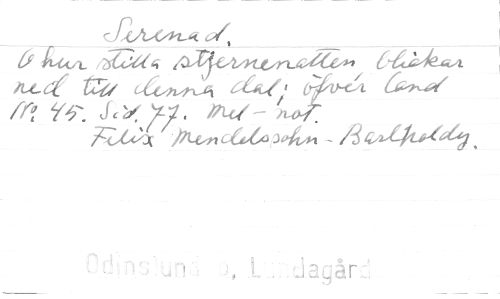 Serenad.
O hur stilla stjernenatten blickar
ned till denna dal; öfver land
No. 45. Sid. 77. Mel-not.
Felix Mendelssohn-Bartholdy.
Odinslund o, Lundagård